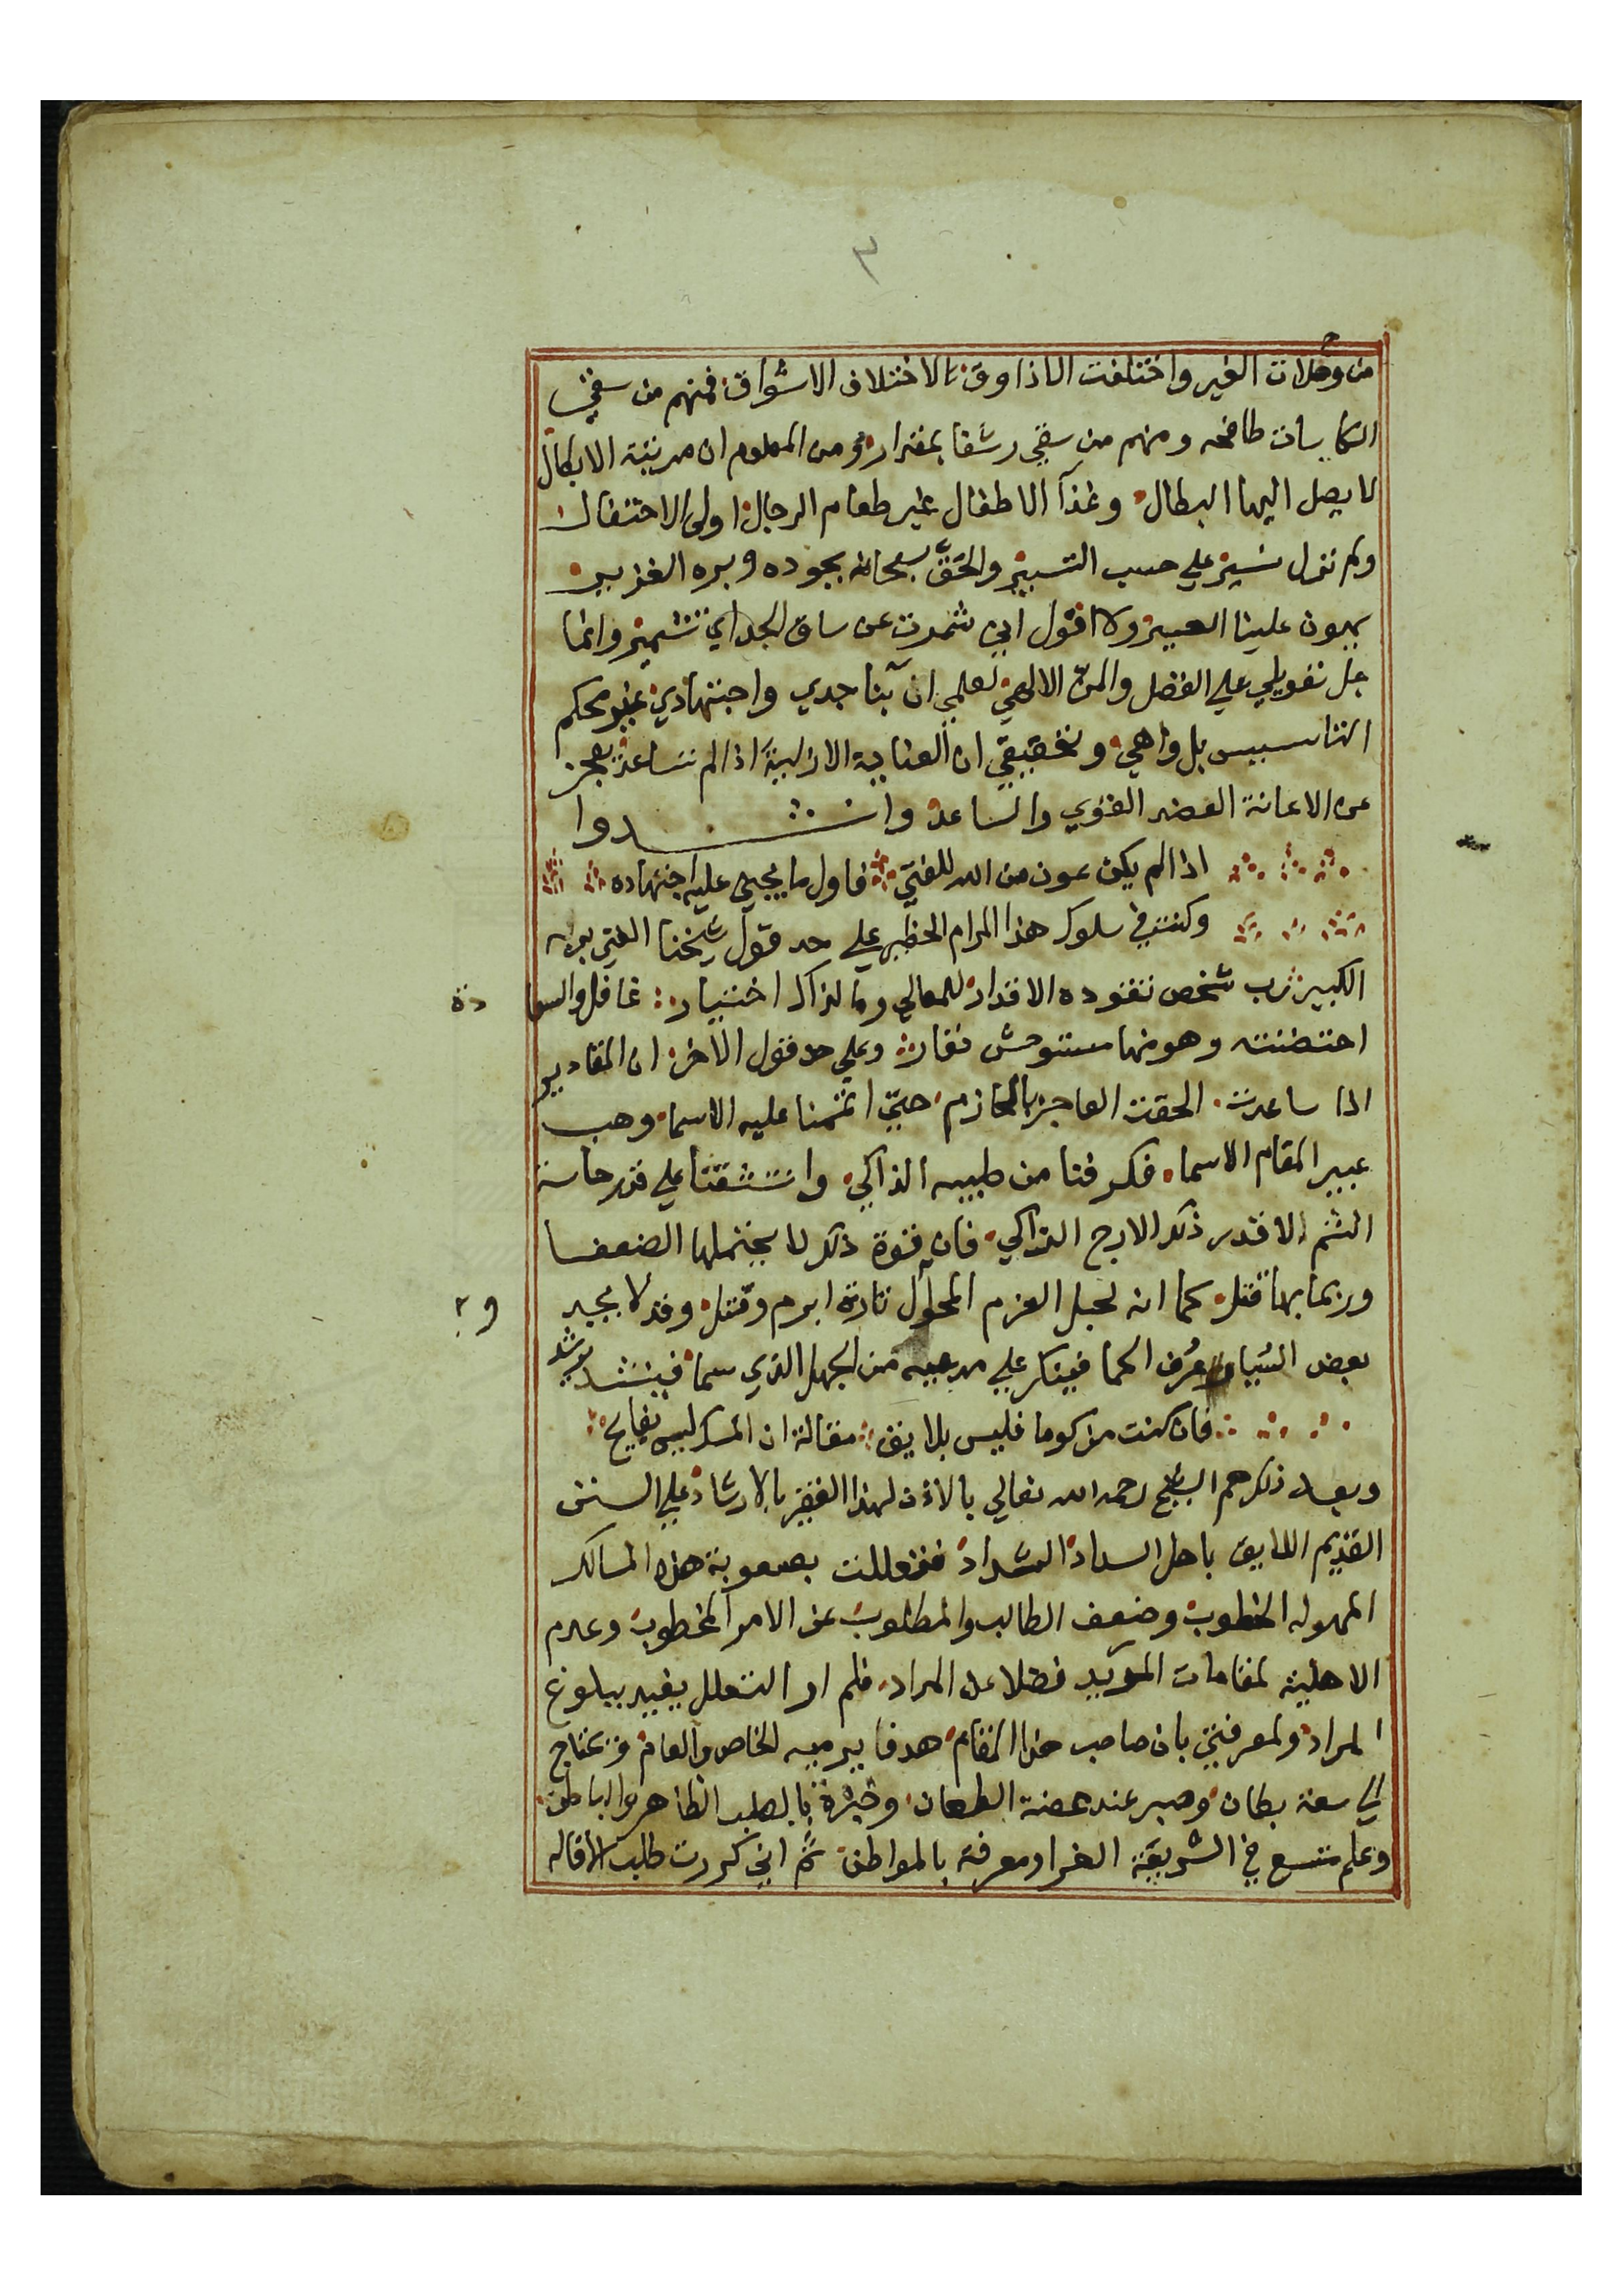 ٣
من وحلات الغير واختلفت الاذاوق بالاختلاف الاشواق فمنهم من سقي
الكاسات طافحه ومنهم من سقي رشفا بمقدار ومن المعلوم ان مدينة الابطال
لا يصل اليها البطال وغذآ الاطفال غير طعام الرجال اولى الاحتفال
ولم نزل نسير علي حسب التسيير والحق سبحانه بجوده وبره الغزير
يهون علينا العسير ولا اقول اني شمرت عن ساق الجد اي تشمير وانما
جل تعويلي علي الفضل والمن الالهي لعلمي ان بنا جدي واجتهادي غير محكم
التاسيس بل واهي وتحقيقي ان العناية الازلية اذا لم تساعد يعجز
عن الاعانة العضد القوي والساعد وانشدوا
اذا لم يكن عون من الله للفتي فاول ما يجني عليه اجتهاده
وكنت في سلوك هذا المرام الخطير علي حد قول شيخنا الفتي بربه
الكبير رب شخص تقوده الاقدار للمعالي وما لذاك اختيار غافل والسعا
دة
احتضنته وهو منها مستوحش نفار وعلي حد قول الاخر ان المقادير
اذا ساعدت الحقت العاجز بالحازم حتي اتممنا عليه الاسما وهب
عبير المقام الاسما فكرفنا من طيبه الذاكي وانتشقنا علي قدر حاسة
الشم الاقدر ذلك الارج الزاكي فان قوة ذلك لا يحتملها الضعفا
وربما بها قتل كما ان لحبل العزم المحلول تارة ابرم وفتل وقد لا يجيد
بعض عرف الحما فينكر علي مدعيه من الجهل الذي سما فينشد
فان كنت مزكوما فليس بلايق مقالة ان المسك ليس بفايح
وبعد ذلك هم الشيخ رحمه الله تعالي بالاذن لهذا الفقير بالارشاد علي السنن
القديم اللايق باهل السداد الشداد فتعللت بصعوبة هذه المسالك
المهوله الخطوب وضعف الطالب والمطلوب عن الامر المخطوب وعدم
الاهلية لمقامات المريد فضلا عن المراد فلم ار التعلل يفيد ببلوغ
المراد ولمعرفتي بان صاحب هذا المقام هدفا يرميه الخاص والعام ويحتاج
الي سعة بطان وصبر عند عضة الطعان وخبرة بالطب الظاهر والباطن
وعلم متسع في الشريعة الغرا ومعرفة بالمواطن ثم اني كررت طلب الاقاله